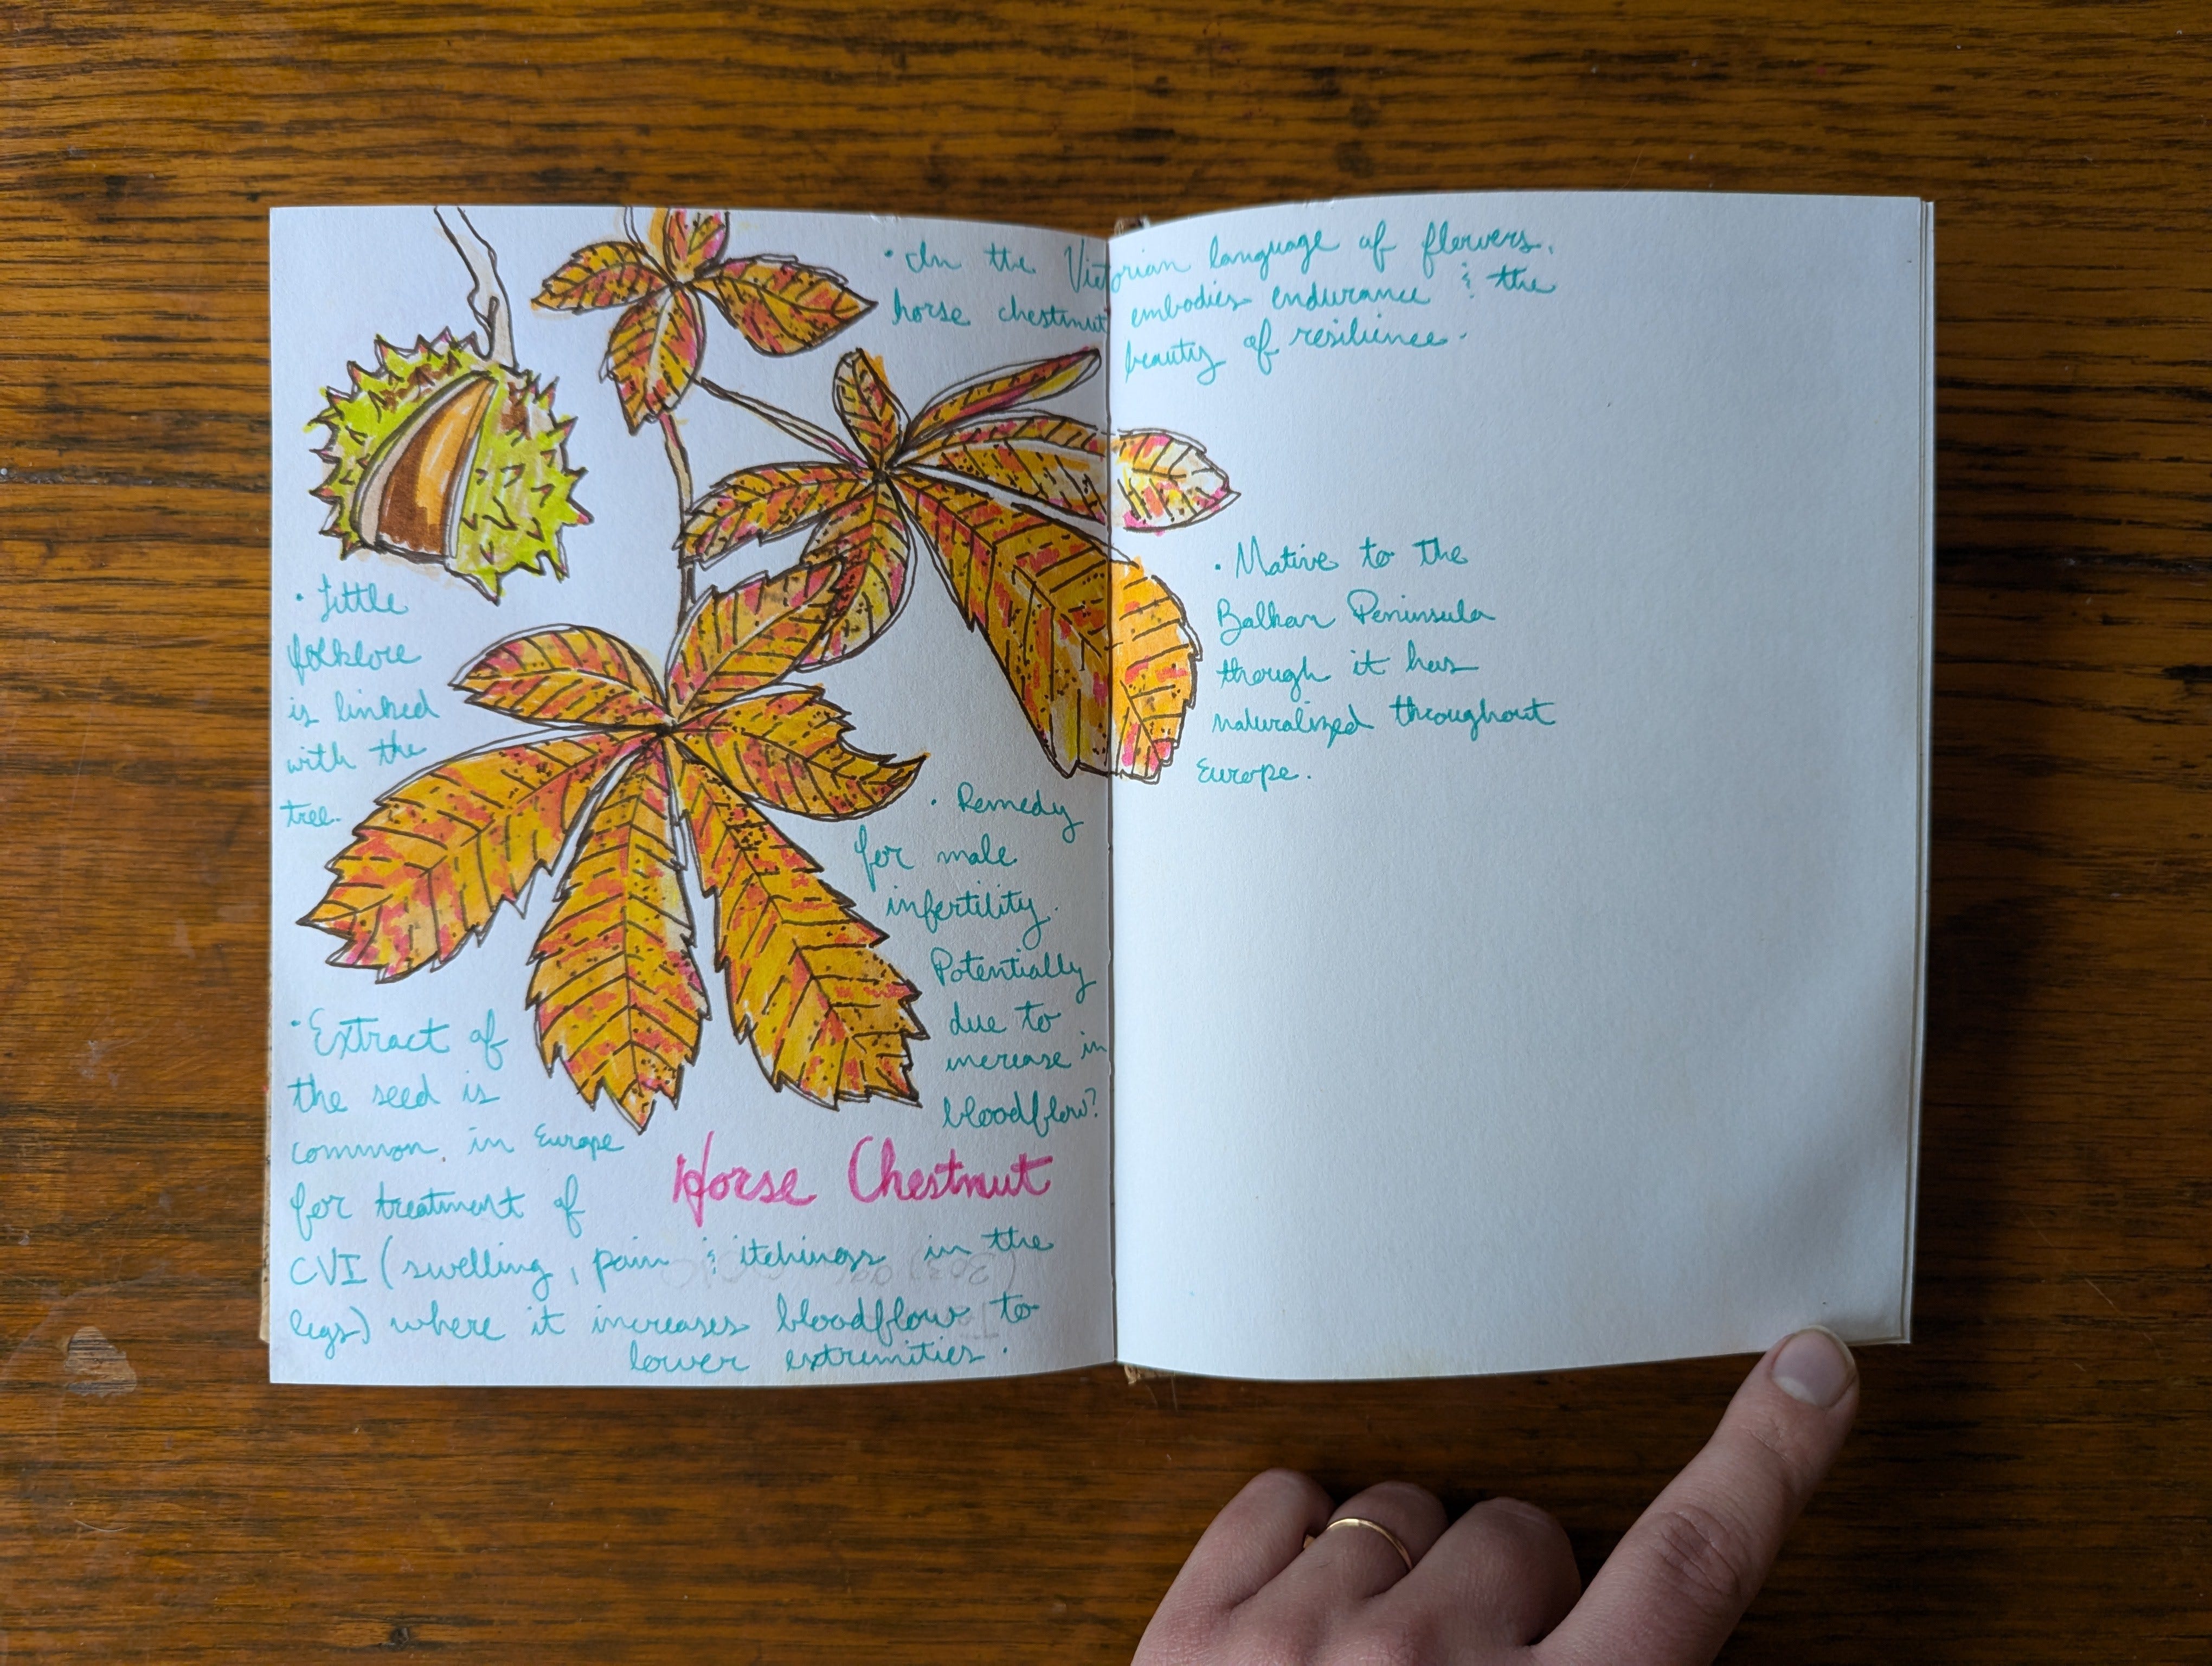 • In the Victorian language of flowers,
horse chestnut embodies endurance & the
beauty of resilience.
• Little
folklore
is linked
with the
tree.
• Native to the
Balkan Peninsula
though it has
naturalized throughout
Europe.
• Remedy
for male
infertility.
Potentially
due to
increase in
bloodflow?
• Extract of
the seed is
common in Europe
for treatment of
CVI (swelling, pain & itchings in the
legs) where it increases bloodflow to
lower extremities.
Horse Chestnut